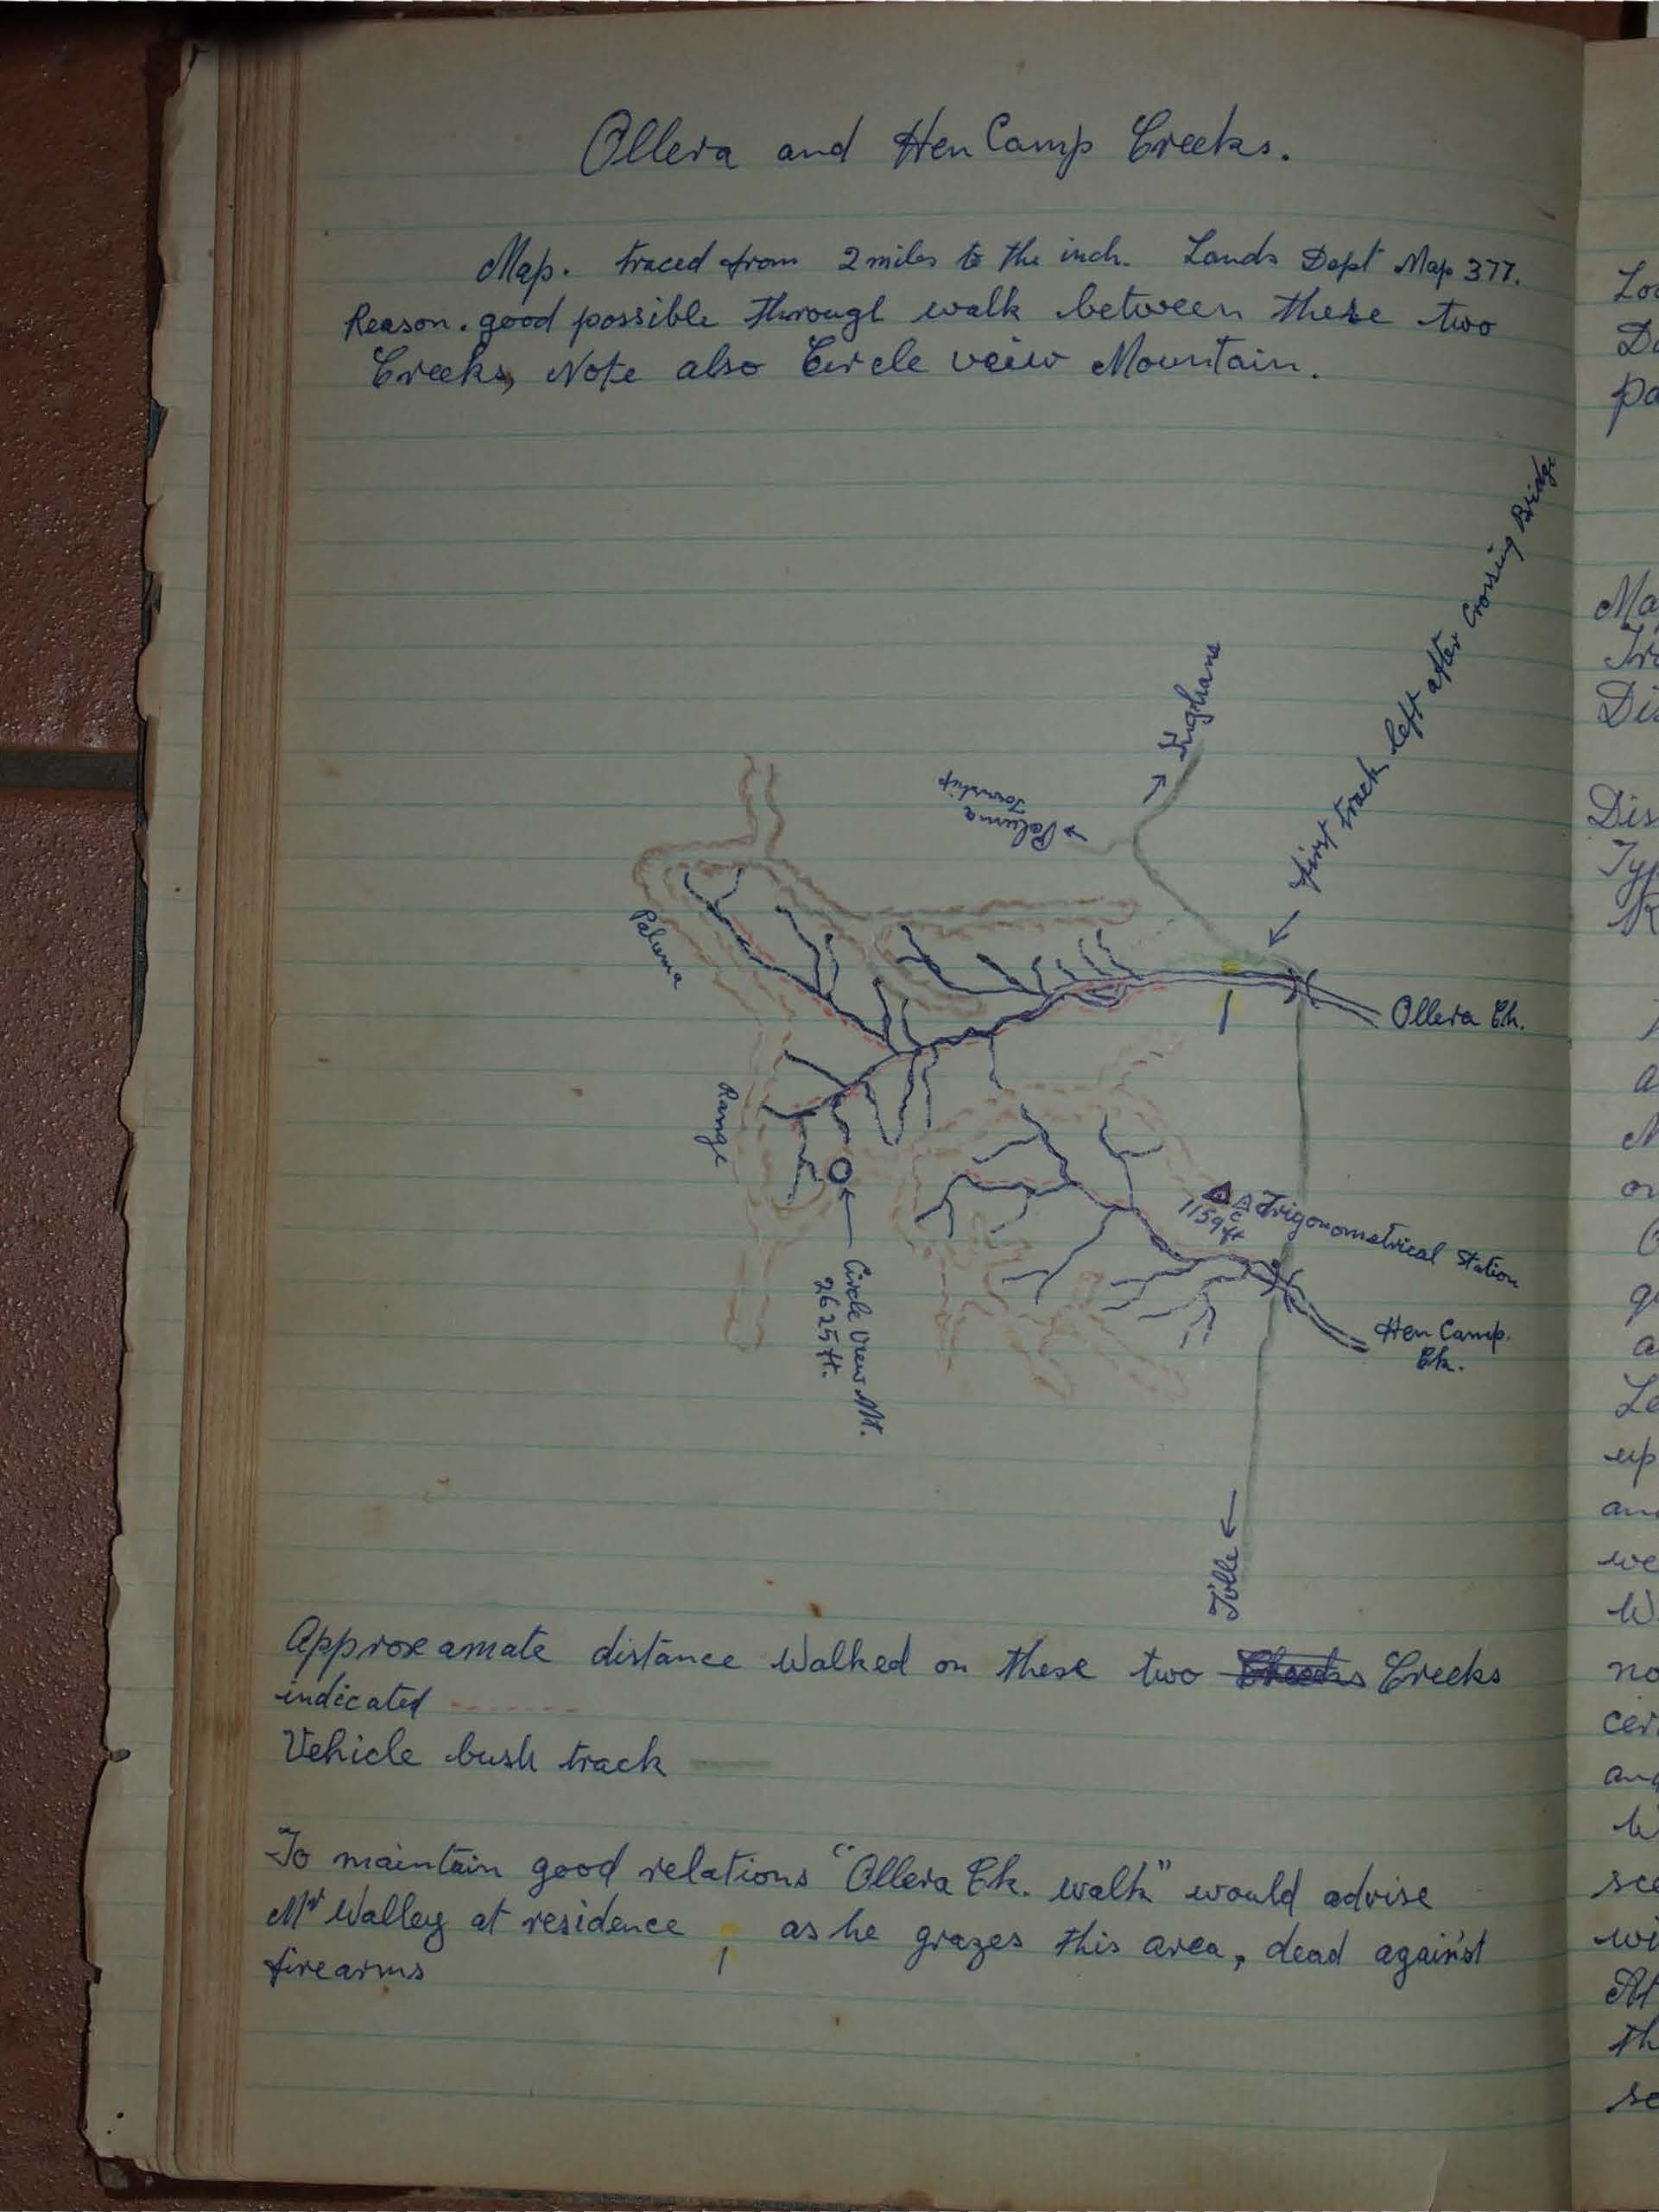 Ollera and Hen Camp Creeks.
Map. traced from 2 miles to the inch. Lands Dept Map 377.
Reason. good possible through walk between these two
Creeks, Note also Circle veiw Mountain.
First track left after Crossing Bridge
Ingham
Paluma
Township
Paluma
Range
Ollera Ck.
Trigonometrical Station
1159 ft
Circle View Mt.
2625 ft.
Hen Camp.
Ck.
Approxamate distance Walked on these two Creeks
indicated
Vehicle bush track
To maintain good relations "Ollera Ck. walk" would advise
Mr Walley at residence as he grazes this area, dead against
firearms
Ma
Dis
no
and
we
up
wi